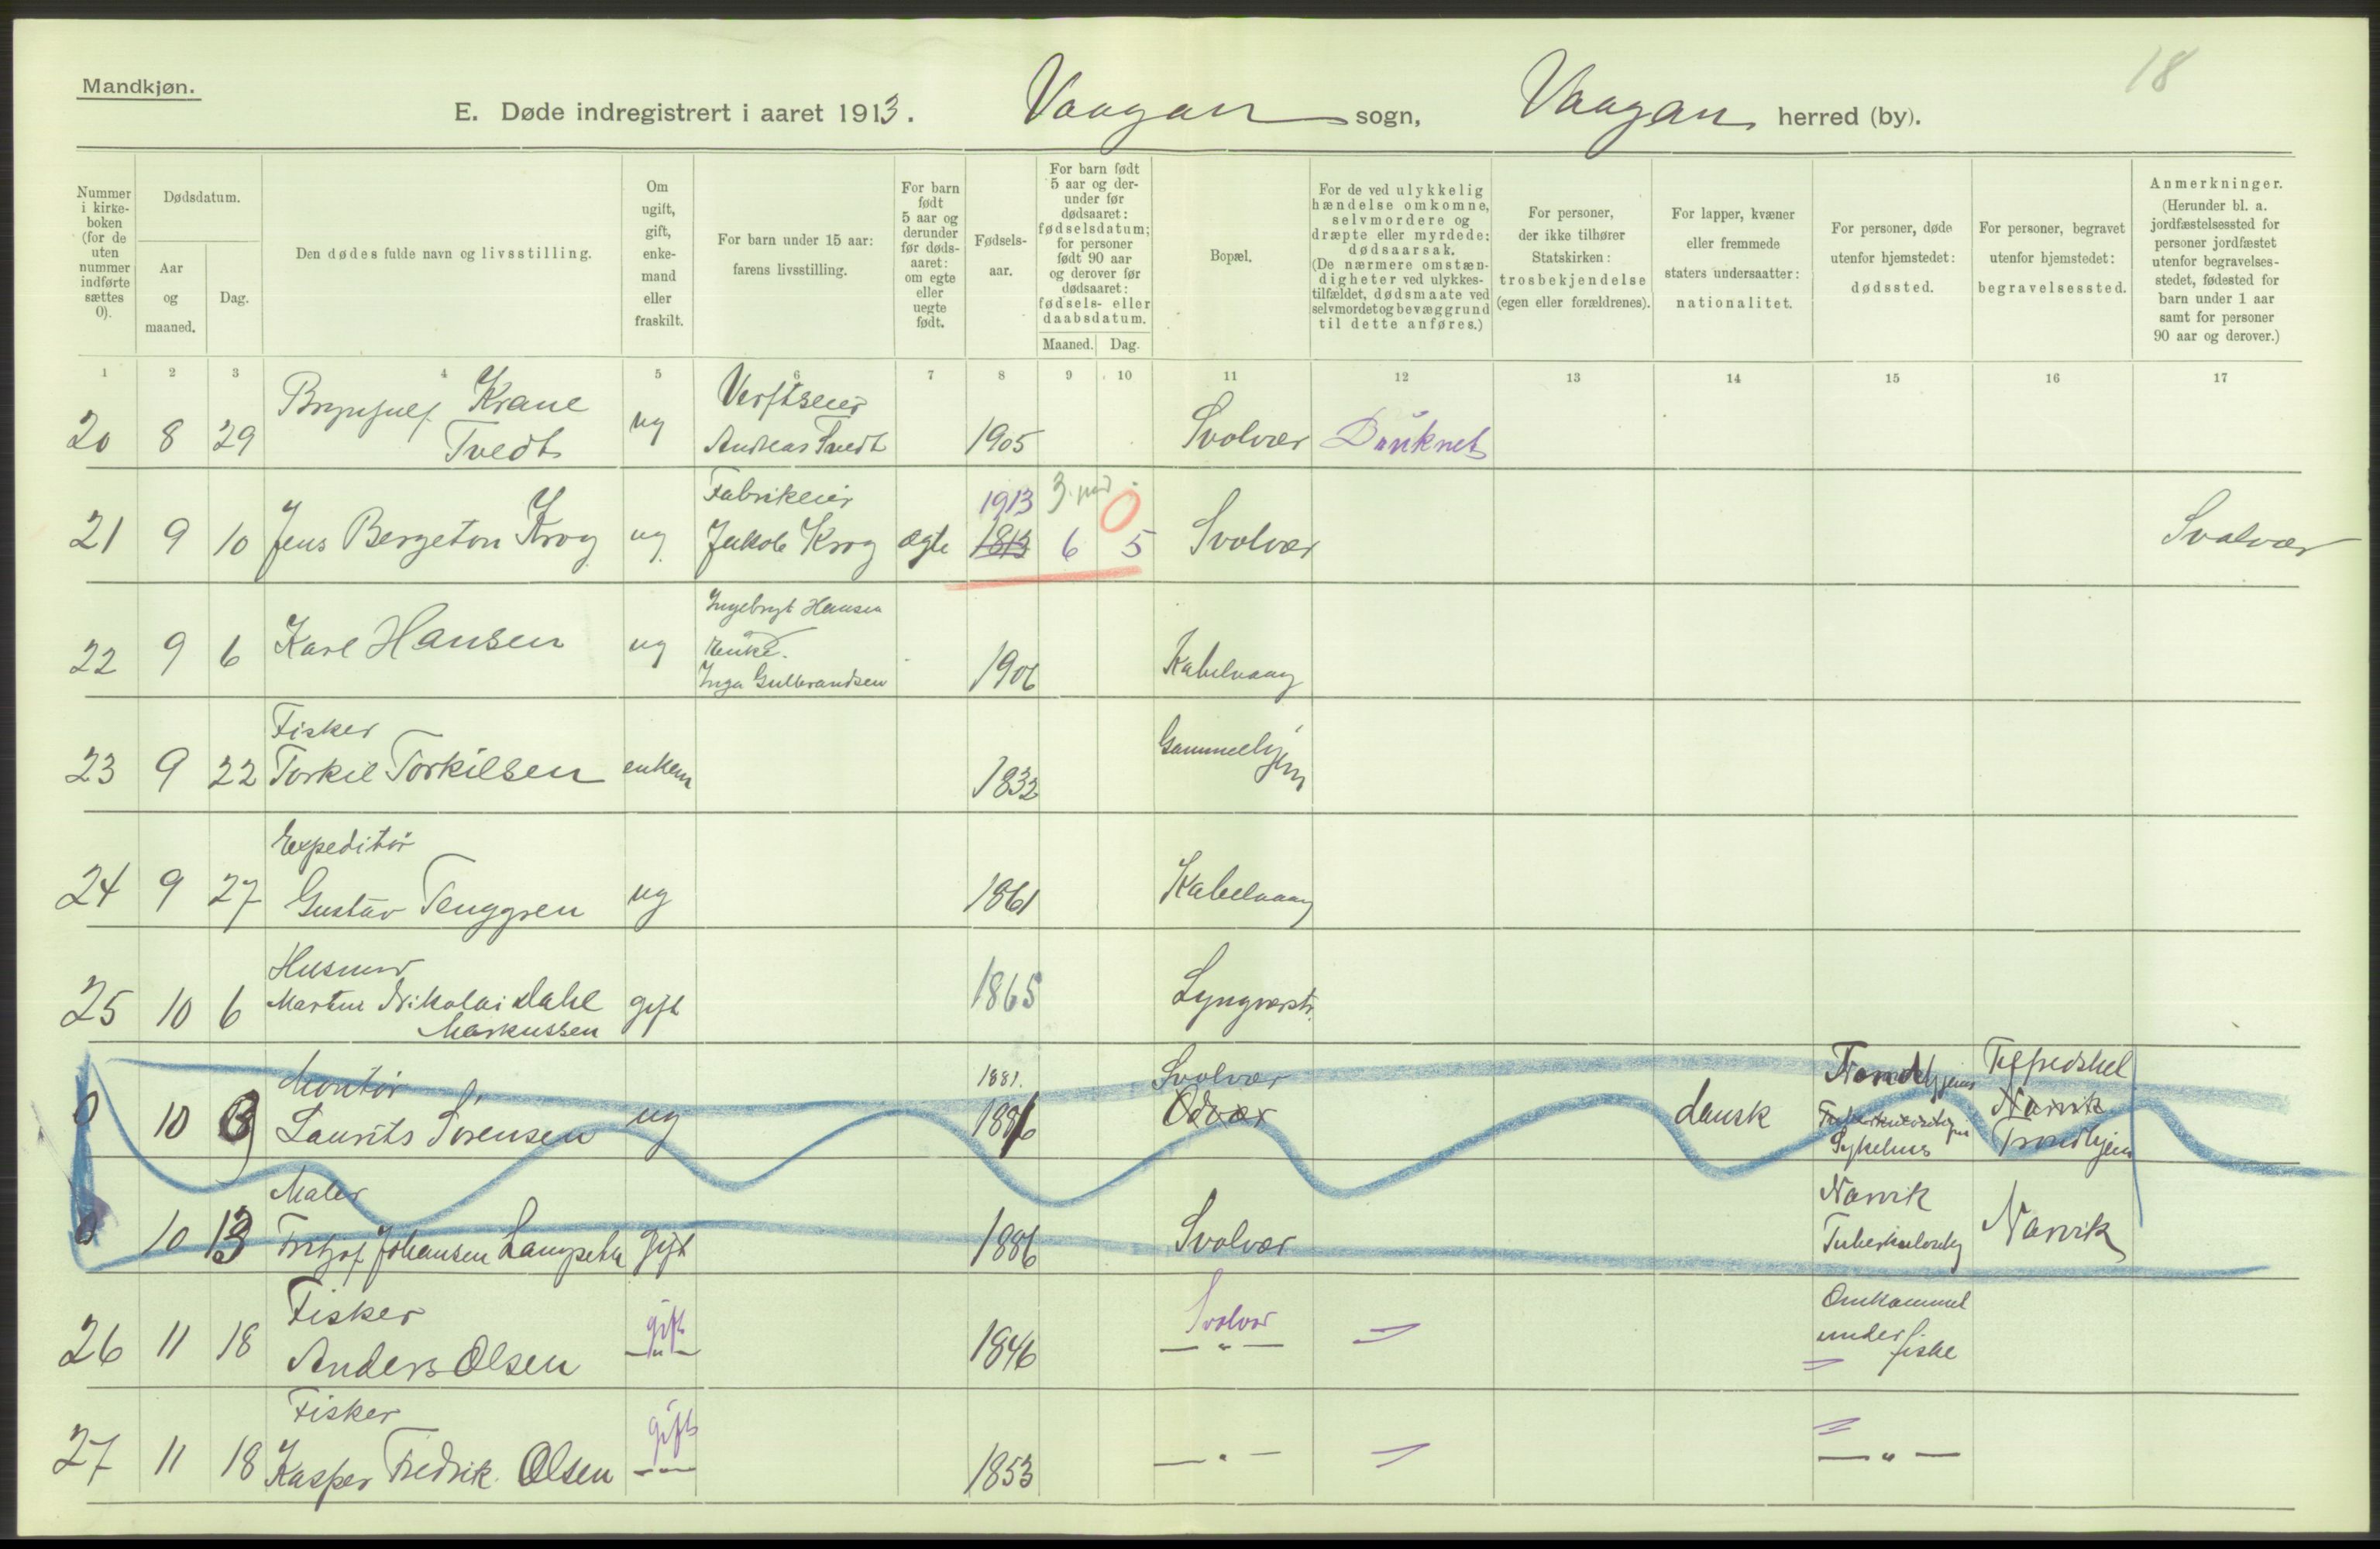 Mandkjøn.
18
E. Døde indregistrert i aaret 1913. Vaagan sogn, Vaagan herred (by).
Nummer i kirke-boken (for de uten nummer indførte sættes 0).
Dødsdatum.
Aar og maaned.
Dag.
Den dødes fulde navn og livsstilling.
Om ugift, gift, enke-mand eller fraskilt.
For barn under 15 aar: farens livsstilling.
For barn født 5 aar og derunder før døds-aaret: om egte eller uegte født.
Fødsels-aar.
For barn født 5 aar og der-under før dødsaaret: fødselsdatum; for personer født 90 aar og derover før dødsaaret: fødsels- eller daabsdatum.
Maaned. Dag.
Bopæl.
For de ved ulykkelig hændelse omkomne, selvmordere og dræpte eller myrdede: dødsaarsak. (De nærmere omstæn-digheter ved ulykkes-tilfældet, dødsmaate ved selvmordet og bevæggrund til dette anføres.)
For personer, der ikke tilhører Statskirken: trosbekjendelse (egen eller forældrenes).
For lapper, kvæner eller fremmede staters undersaatter: nationalitet.
For personer, døde utenfor hjemstedet: dødssted.
For personer, begravet utenfor hjemstedet: begravelsessted.
Anmerkninger. (Herunder bl. a. jordfæstelsessted for personer jordfæstet utenfor begravelses-stedet, fødested for barn under 1 aar samt for personer 90 aar og derover.)
1 2 3 4 5 6 7 8 9 10 11 12 13 14 15 16 17
20 8 29 Brynjulf Krane Tvedt ug Verftseier Andreas Tvedt 1905 Svolvær Druknet
21 9 10 Jens Bergeton Krog ug. Fabrikeier Jakob Krog ægte 1913 1813 3. md 0 6 5 Svolvær Svolvær
22 9 6 Karl Hansen ug Ingebrygt Hansen Enke. Inga Gulbrandsen 1906 Kabelvaag
23 9 22 Fisker Torkil Torkilsen enkem 1832 Gammelhjem
24 9 27 Expeditør Gustav Tenggren ug 1861 Kabelvaag
25 10 6 Husmor Martin Nikolai Dahl Markussen gift 1865 Lyngværstr.
0 10 Montør Laurits Sørensen ug 1881. 1886 Svolvær Odvær dansk Trondhjems Sykehus Narvik Trondhjem
0 10 13 Maler Fritjof Johansen gift 1886 Svolvær Narvik Narvik
26 11 18 Fisker Anders Olsen gift — " — 1846 Svolvær — " — Omkommet under fiske
27 11 18 Fisker Kasper Fredrik Olsen gift — " — 1853 — " — — " —